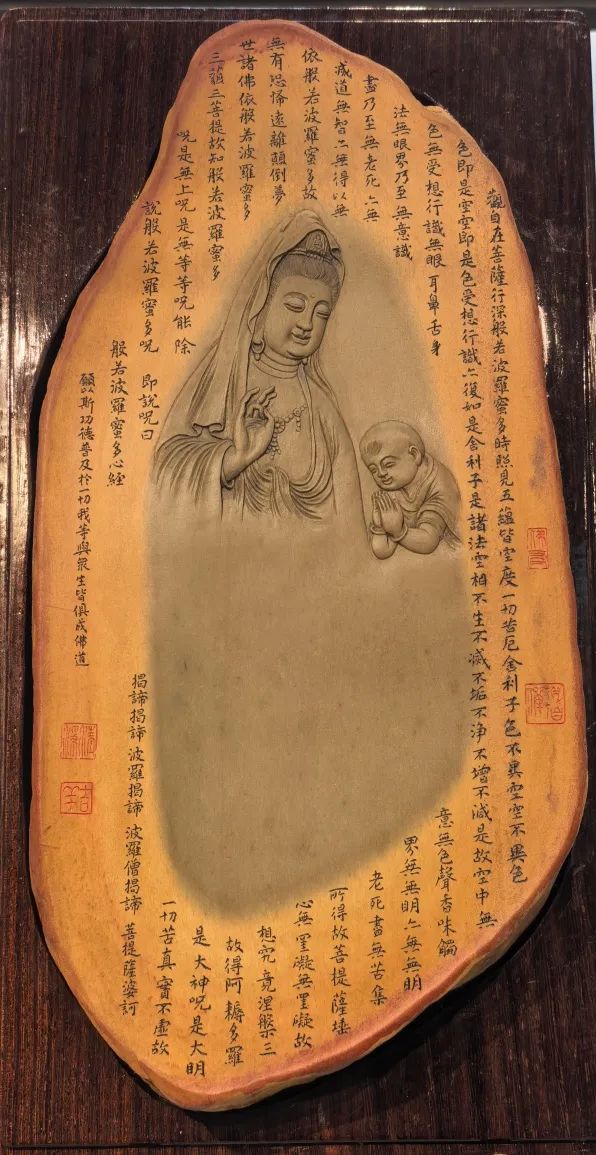 觀自在菩薩行深般若波羅蜜多時照見五蘊皆空度一切苦厄舍利子色不異空空不異色
色即是空空即是色受想行識亦復如是舍利子是諸法空相不生不滅不垢不净不增不減是故空中無
色無受想行識無眼耳鼻舌身
意無色聲香味觸
法無眼界乃至無意識
界無無明亦無無明
盡乃至無老死亦無
老死盡無苦集
滅道無智亦無得以無
所得故菩提薩埵
依般若波羅蜜多故
心無罣礙無罣礙故
無有恐怖遠離顛倒夢
想究竟涅槃三
世諸佛依般若波羅蜜多
故得阿耨多羅
三藐三菩提故知般若波羅蜜多
是大神呪是大明
呪是無上呪是無等等呪能除
一切苦真實不虛故
說般若波羅蜜多呪 即說呪曰
揭諦揭諦 波羅揭諦 波羅僧揭諦 菩提薩婆訶
般若波羅蜜多心經
願以斯功德普及於一切我等與眾生皆俱成佛道